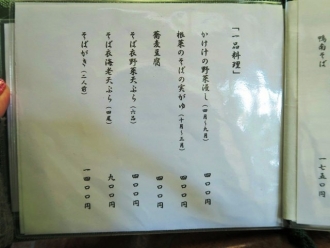 鴨南そば
一七五〇円
「一品料理」
かけ汁の野菜浸し（四月～九月）
四〇〇円
根菜のそばの実がゆ（十月～三月）
四〇〇円
蕎麦豆腐
四〇〇円
そば衣野菜天ぷら（六品）
四〇〇円
そば衣海老天ぷら（四尾）
九〇〇円
そばがき（二人前）
一四〇〇円